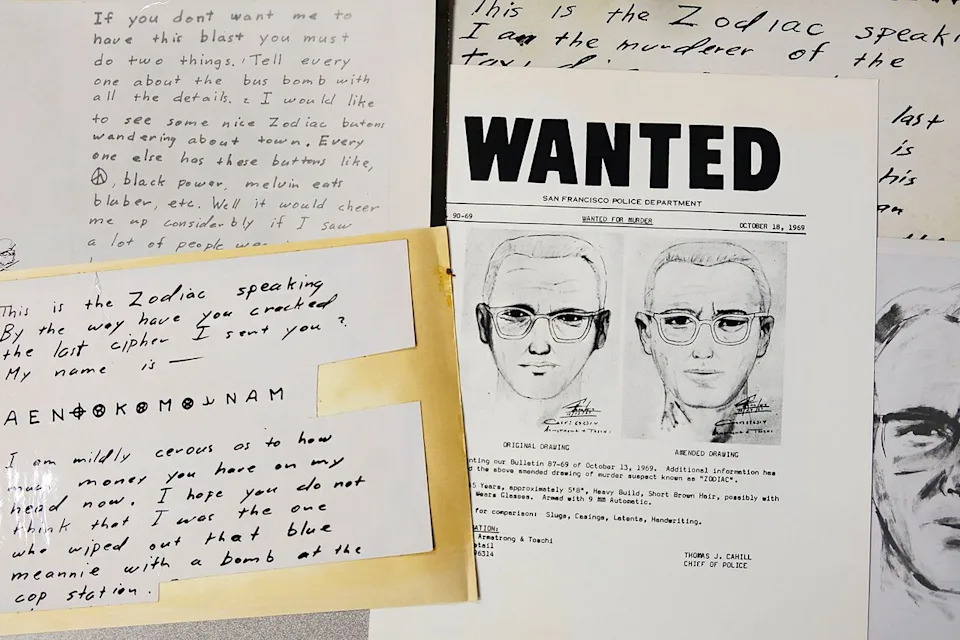 If you dont want me to
have this blast you must
do two things. Tell every
one about the bus bomb with
all the details. 2 I would like
to see some nice Zodiac butons
wandering about town. Every
one else has these buttons like,
, black power, melvin eats
bluber, etc. Well it would cheer
me up considerbly if I saw
a lot of people
This is the Zodiac speaking
By the way have you cracked
the last cipher I sent you?
My name is —
AEN⊕⊗K⊗M⊗⅃NAM
I am mildly cerous as to how
much money you have on my
head now. I hope you do not
think that I was the one
who wiped out that blue
meannie with a bomb at the
cop station.
This is the Zodiac speaki
I am the murderer of the
last
is
his
an
WANTED
SAN FRANCISCO POLICE DEPARTMENT
90-69 WANTED FOR MURDER OCTOBER 18, 1969
ORIGINAL DRAWING AMENDED DRAWING
nting our Bulletin 87-69 of October 13, 1969. Additional information has
d the above amended drawing of murder suspect known as "ZODIAC".
5 Years, approximately 5'8", Heavy Build, Short Brown Hair, possibly with
Wears Glasses. Armed with 9 MM Automatic.
for comparison: Slugs, Casings, Latents, Handwriting.
ATION:
Armstrong & Toschi
etail
6314
THOMAS J. CAHILL
CHIEF OF POLICE